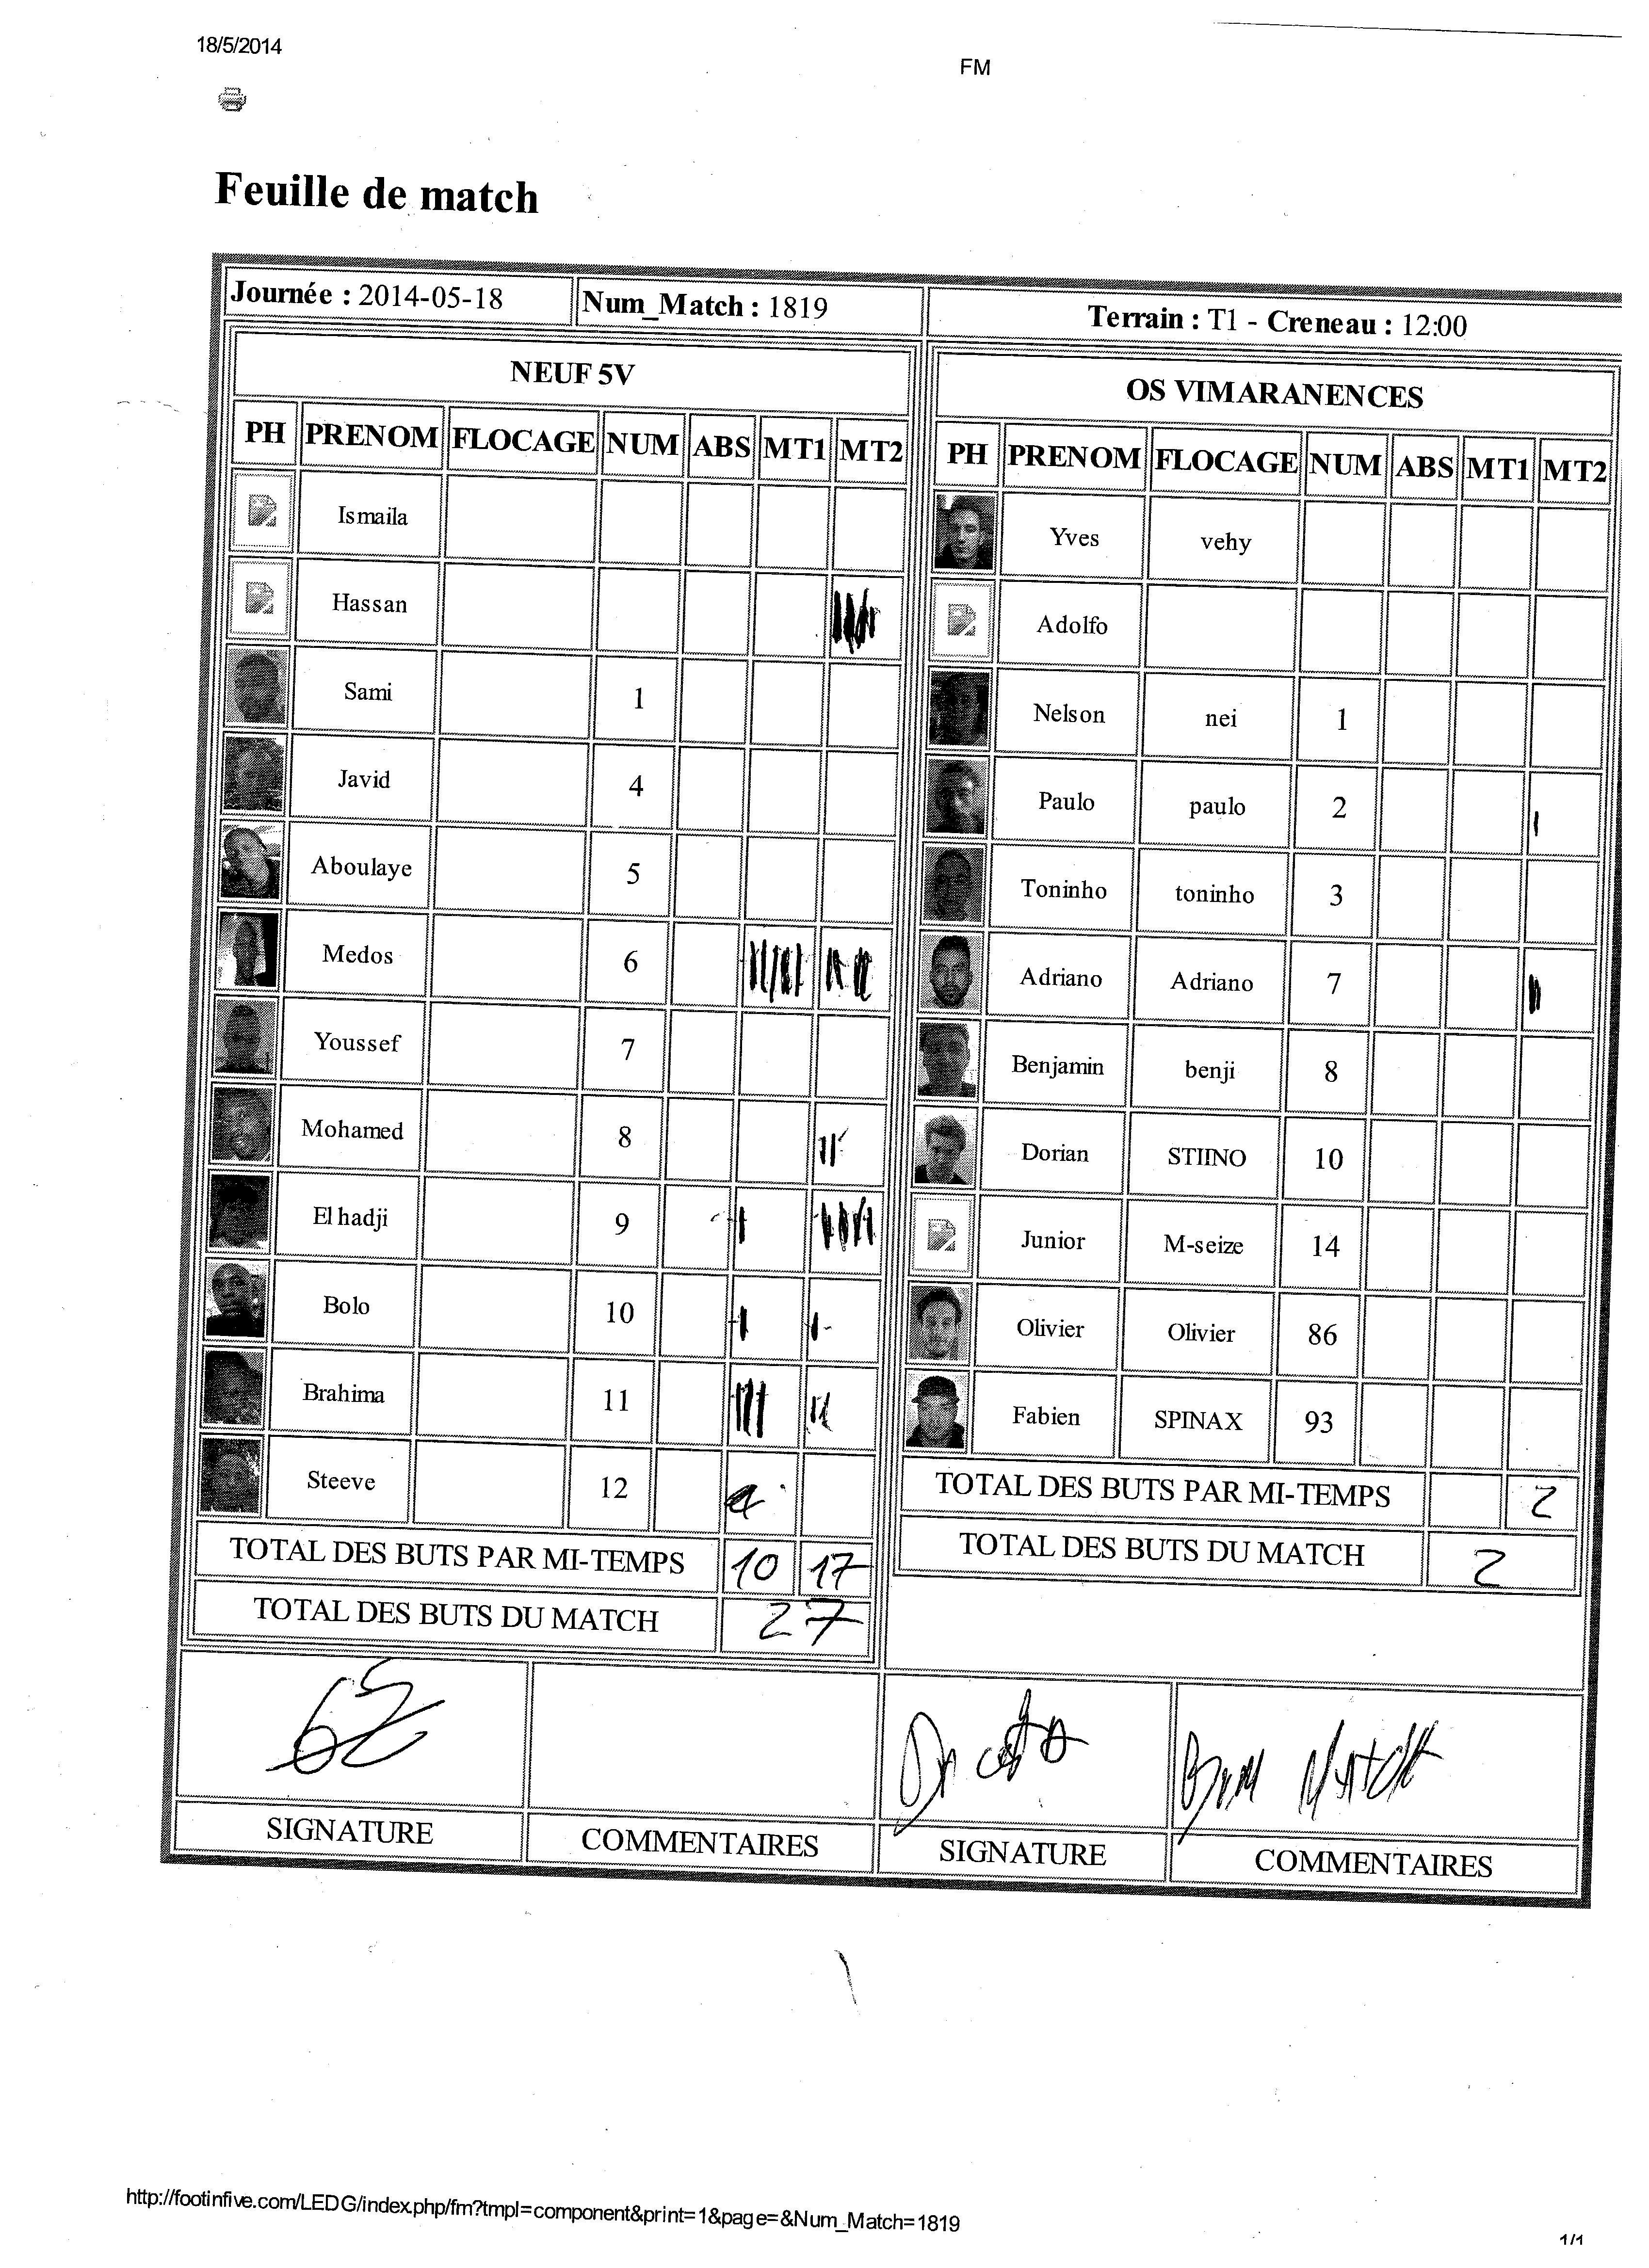 18/5/2014
FM
Feuille de match
Journée : 2014-05-18 Num_Match : 1819 Terrain : T1 - Creneau : 12:00
NEUF 5V
PH PRENOM FLOCAGE NUM ABS MT1 MT2
Ismaila
Hassan
Sami 1
Javid 4
Aboulaye 5
Medos 6
Youssef 7
Mohamed 8
El hadji 9
Bolo 10
Brahima 11
Steeve 12
TOTAL DES BUTS PAR MI-TEMPS 10 17
TOTAL DES BUTS DU MATCH 27
OS VIMARANENCES
PH PRENOM FLOCAGE NUM ABS MT1 MT2
Yves vehy
Adolfo
Nelson nei 1
Paulo paulo 2
Toninho toninho 3
Adriano Adriano 7
Benjamin benji 8
Dorian STIINO 10
Junior M-seize 14
Olivier Olivier 86
Fabien SPINAX 93
TOTAL DES BUTS PAR MI-TEMPS 2
TOTAL DES BUTS DU MATCH 2
SIGNATURE COMMENTAIRES SIGNATURE COMMENTAIRES
http://footinfive.com/LEDG/index.php/fm?tmpl=component&print=1&page=&Num_Match=1819
1/1